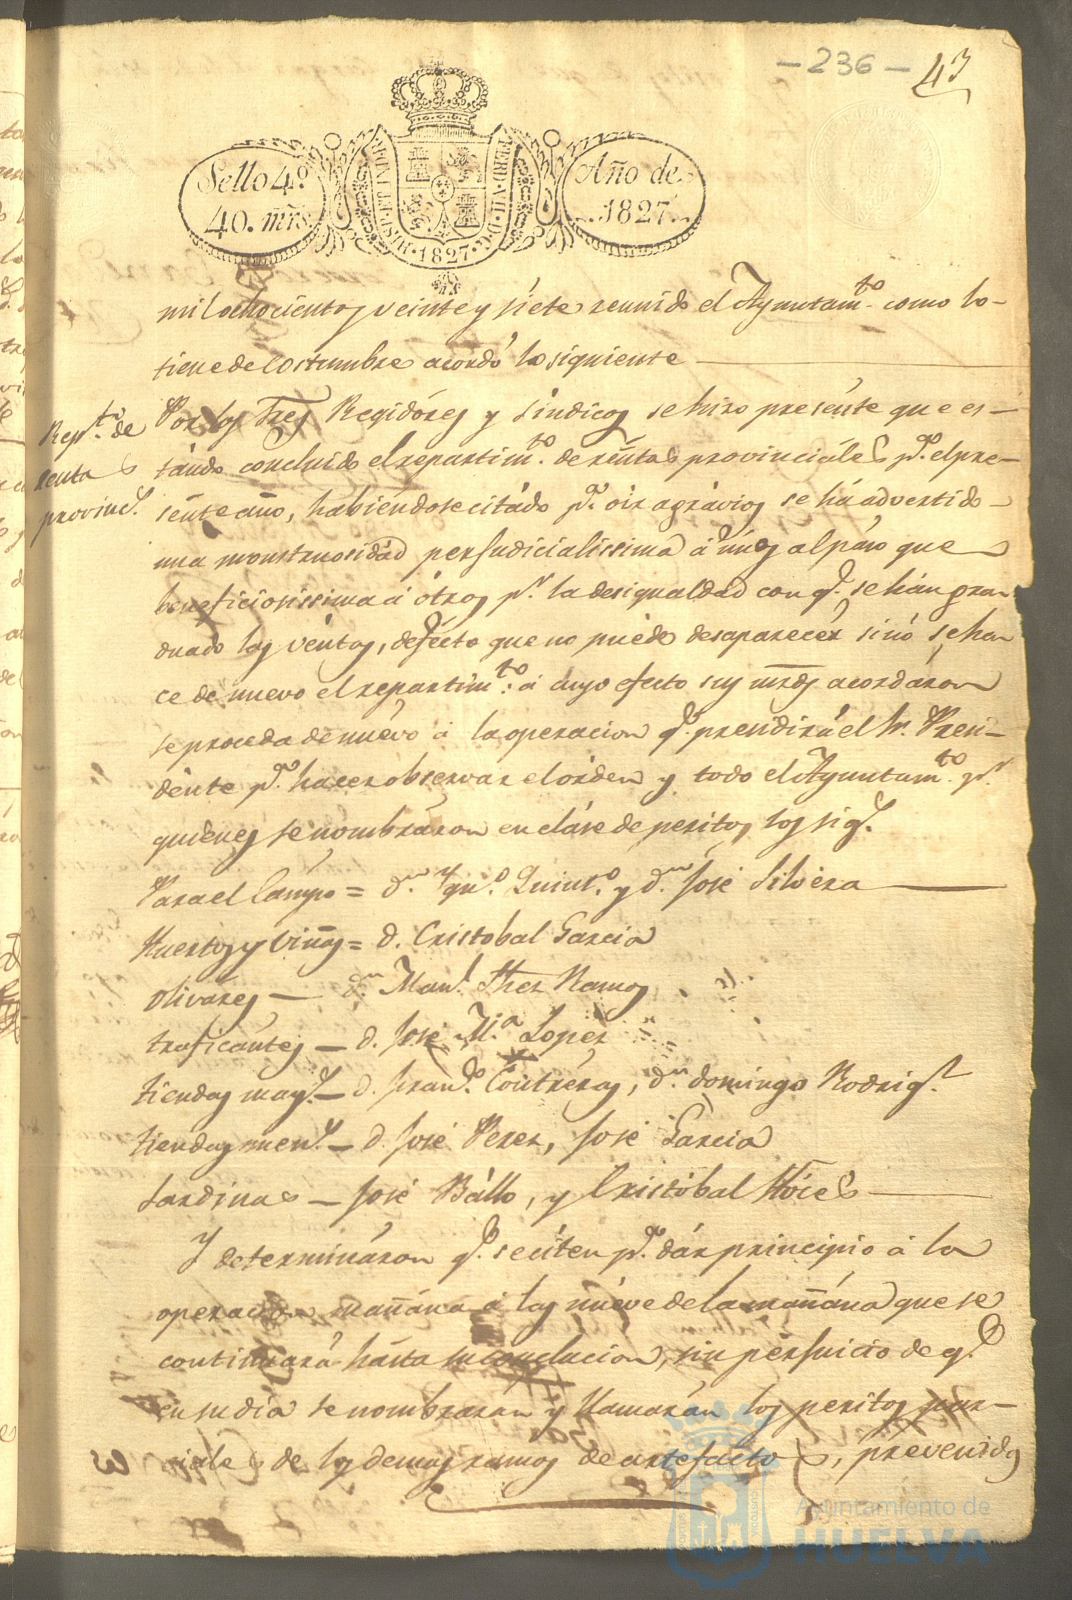 - 236 - 43
Sello 4º
40. mrs.
HISP. ET IND. R. FERD. VII. D. G. 1827.
Año de
1827.
mil ochocientos veinte y siete reunido el Ayuntamto. como lo
tiene de costumbre acordó lo siguiente
Reptto. de
rentas
provincs.
Por los Sres Regidóres y Síndicos se hizo presénte que es-
tándo concluido el repartimto. de réntas provinciáles pª. el pre-
sénte año, habiéndose citádo pª. oir agrávios se há advertido
una monstruosidád perjudicialissima á únos al páso que
beneficiosissima á ótros pr. la desigualdád con q. se hán gra-
duado las véntas, defécto que no puéde desaparecér sinó se ha-
ce de nuevo el repartimto. á cuyo efecto sus mrds acordáron
se proceda de nuévo á la operacion q. precidirá el Sr. Presi-
dénte pª. hacer observar el órden y todo el Ayuntamto. pr.
quiénes se nombráron en cláse de peritos los sigs.
Para el Campo = dn. Ygno. Quinto. y dn. José Silvéra
Huertos y Viñas = d. Cristobal Garcia
Olivares — dn. Manl. Hez Ramos
traficántes — d. José Mª Lopez
tiendas mays. — d. Franco. Contréras, dn. domingo Rodrigz.
tiendas mens. — d. José Perez, José Garcia
Sardinas — José Bállo, y Cristóbal
Y determináron q. se citen pª. dár principio á la
operacion mañána á las nuéve de la mañána que se
continuará hásta su conclucion, sin perjuicio de q.
en su dia se nombraran y llamarán los peritos par-
ciales de los demas ramos de artefáctos, prevenidos
Ayuntamiento de
HUELVA